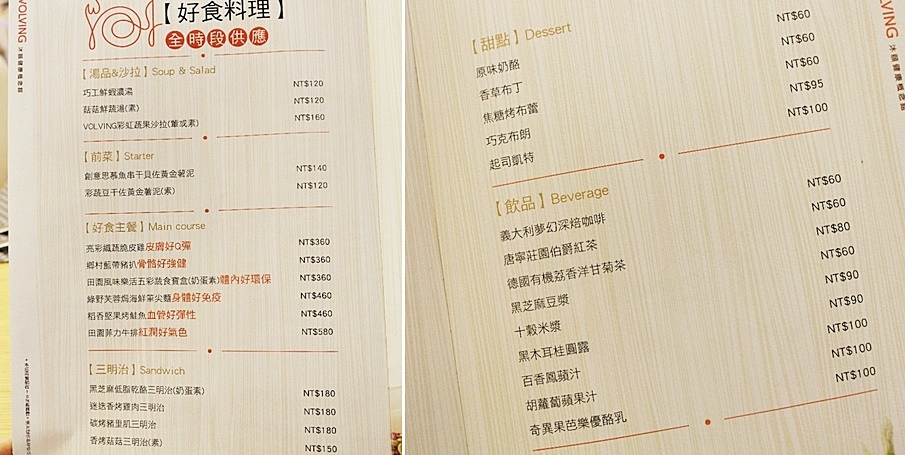 VOLVING
【好食料理】
全時段供應
【湯品&沙拉】Soup & Salad
巧工鮮蝦濃湯 NT$120
菇菇鮮蔬湯(素) NT$120
VOLVING彩虹蔬果沙拉(葷或素) NT$160
【前菜】Starter
創意思慕魚串干貝佐黃金薯泥 NT$140
彩蔬豆干佐黃金薯泥(素) NT$120
【好食主餐】Main course
亮彩纖蔬脆皮雞皮膚好Q彈 NT$360
鄉村藍帶豬扒骨骼好強健 NT$360
田園風味樂活五彩蔬食寶盒(奶蛋素)體內好環保 NT$360
綠野芙蓉焗海鮮筆尖麵身體好免疫 NT$460
稻香堅果烤鮭魚血管好彈性 NT$460
田園菲力牛排紅潤好氣色 NT$580
【三明治】Sandwich
黑芝麻低脂乾酪三明治(奶蛋素) NT$180
迷迭香烤雞肉三明治 NT$180
碳烤豬里肌三明治 NT$180
香烤菇菇三明治(素) NT$150
VOLVING
【甜點】Dessert
原味奶酪 NT$60
香草布丁 NT$60
焦糖烤布蕾 NT$60
巧克布朗 NT$95
起司凱特 NT$100
【飲品】Beverage
義大利夢幻深焙咖啡 NT$60
唐寧莊園伯爵紅茶 NT$60
德國有機荔香洋甘菊茶 NT$80
黑芝麻豆漿 NT$60
十穀米漿 NT$90
黑木耳桂圓露 NT$90
百香鳳蘋汁 NT$100
胡蘿蔔蘋果汁 NT$100
奇異果芭樂優酪乳 NT$100